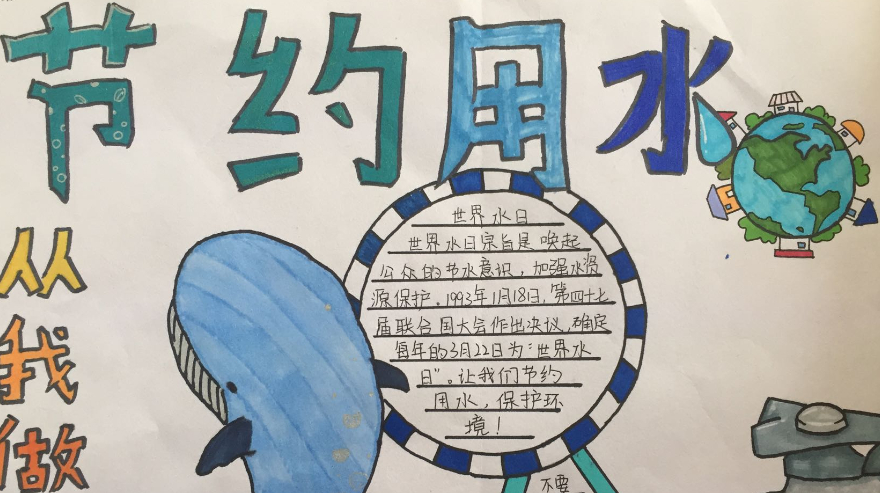 节约用水
从
我
做
世界水日
世界水日宗旨是唤起
公众的节水意识，加强水资
源保护。1993年1月18日，第四十七
届联合国大会作出决议，确定
每年的3月22日为“世界水
日”。让我们节约
用水，保护环
境！
不要